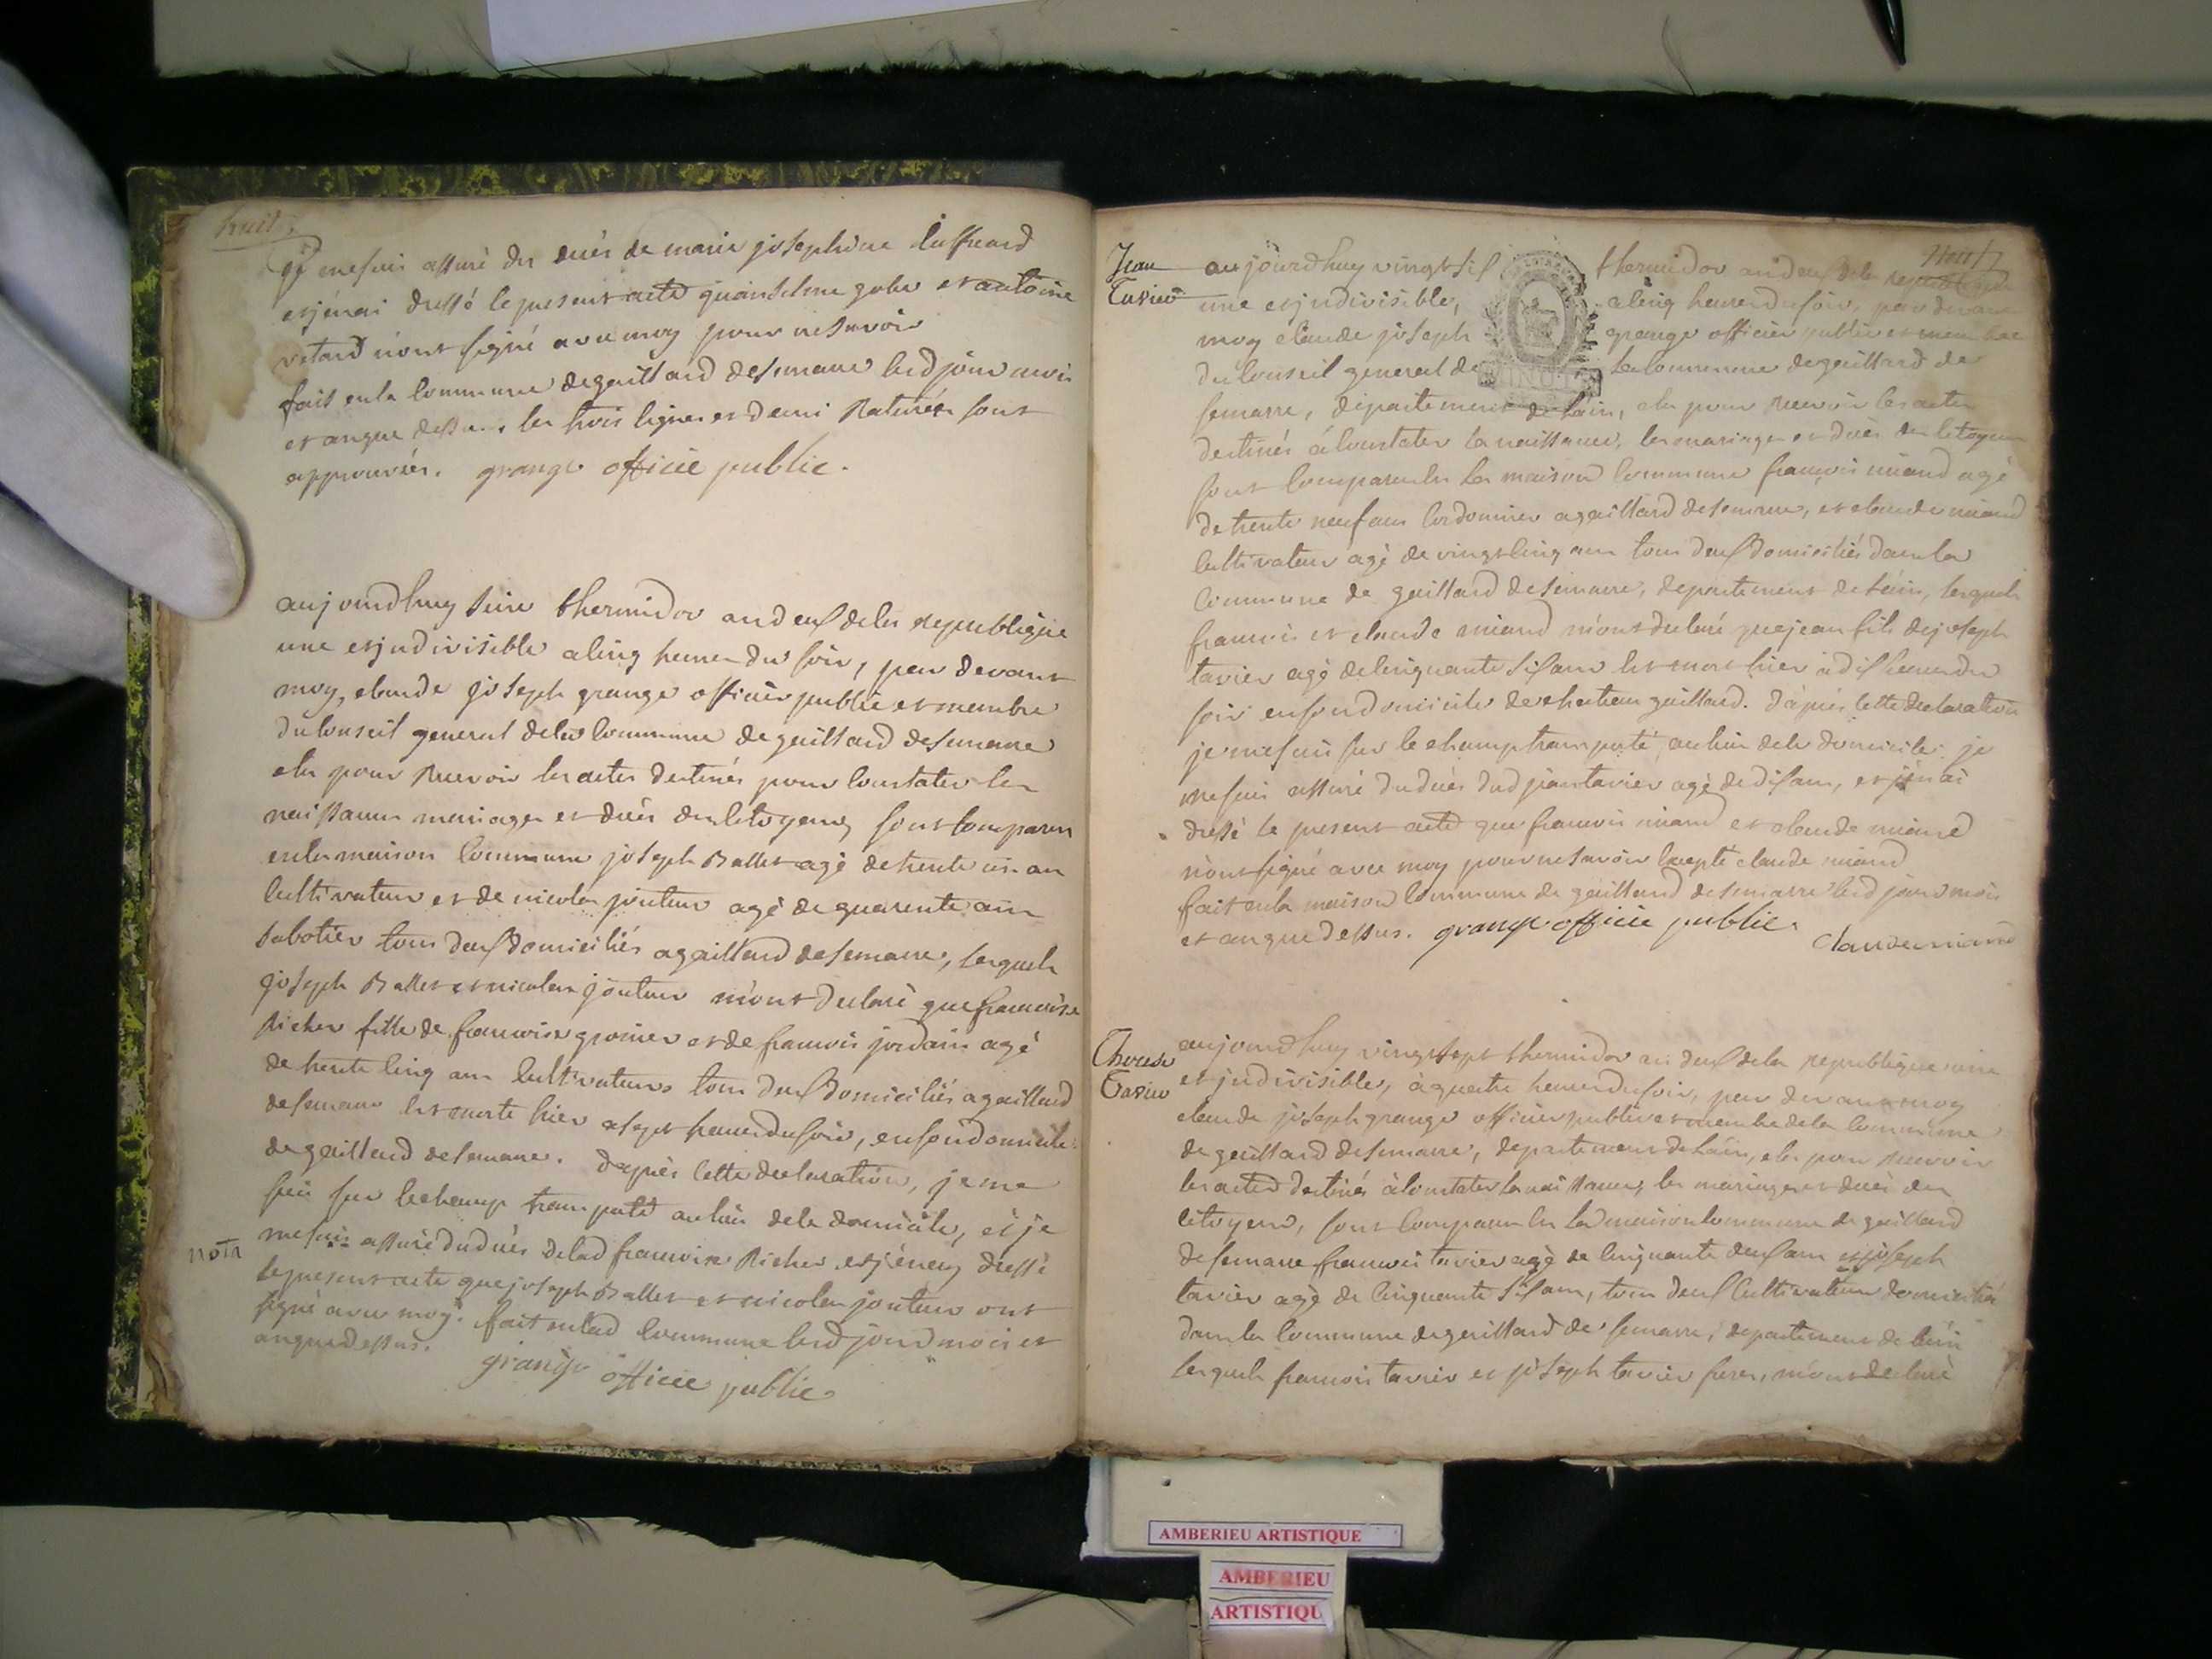 huit
je mesuis assuré du décés de marie josephine
et jénai dressé le present acte quanselme gobe et antoine
retard n'ont signé avec moy pour ne savoir
fait en la commune de gaillard desemane led jour mois
et anque dessus. les trois lignes et demi Raturées sont
approuvées. grange officie public.
aujourdhuy seize thermidor an deux dela republique
une et jndivisible a cinq heures du soir, par devant
moy, claude joseph grange officier public et membre
du conseil general dela commune de gaillard desemane
elu pour Recevoir les actes destinés pour constater les
naissances mariages et décés des citoyens, sont comparus
en la maison commune joseph Ballet agé de trente un an
cultivateur et de nicolas jouteur agé de quarente ans
sabotier tous deux domiciliés a gaillard desemane, lesquels
joseph Ballet et nicolas jouteur m'ont declaré que francoise
Richer fille de francoise grosner et de francois jordain agé
de trente cinq ans cultivateurs tous deux domiciliés a gaillard
desemane est morte hier a sept heures du soir, en son domicile
de gaillard desemane. d'après cette declaration, je me
suis sur le champ transporté au lieu dela domicile, et je
nota
mesuis assuré du décés delad francoise Richer et jéney dressé
le present acte que joseph Ballet et nicolas jouteur ont
signé avec moy. fait en lad commune led jour mois et
anque dessus.
grange officie public
neuf
Jean Tavier
aujourdhuy vingt six thermidor an deux dela republique
une et jndivisible, a cinq heures du soir, par devant
moy claude joseph grange officier public et membre
du conseil general de la commune de gaillard de
semane, departement de l'ain, elu pour Recevoir les actes
destinés à constater la naissance, les mariages et décés des citoyens
sont comparu en la maison commune francois miand agé
de trente neuf ans cordonnier a gaillard desemane, et claude miand
cultivateur agé de vingt cinq ans tous deux domiciliés dans la
commune de gaillard desemane, departement de l'ain, lesquels
francois et claude miand m'ont declaré que jean fils de joseph
tavier agé de cinquante six ans est mort hier à dix heures du
soir en son domicile de chateau gaillard. d'aprés cette declaration
je mesuis sur le champ transporté au lieu dela domicile je
mesuis assuré du décés dud jean tavier agé de dix ans, et j'énai
dressé le present acte que francois miand et claude miand
n'ont signé avec moy pour ne savoir excepté claude miand
fait en la maison commune de gaillard desemane led jour mois
et anque dessus. grange officie public.
claude miand
Therese Tavier
aujourdhuy vingt sept thermidor an deux dela republique une
et jndivisible, à quatre heures du soir, par devant moy
claude joseph grange officier public et membre dela commune
de gaillard desemane, departement de l'ain, elu pour Recevoir
les actes destinés à constater la naissance, les mariages et décés des
citoyens, sont comparu en la maison commune de gaillard
desemane francois tavier agé de cinquante deux ans et joseph
tavier agé de cinquante six ans, tous deux cultivateurs domiciliés
dans la commune de gaillard de semane, departement de l'ain
lesquels francois tavier et joseph tavier freres, m'ont declaré
AMBERIEU ARTISTIQUE
AMBERIEU
ARTISTIQU